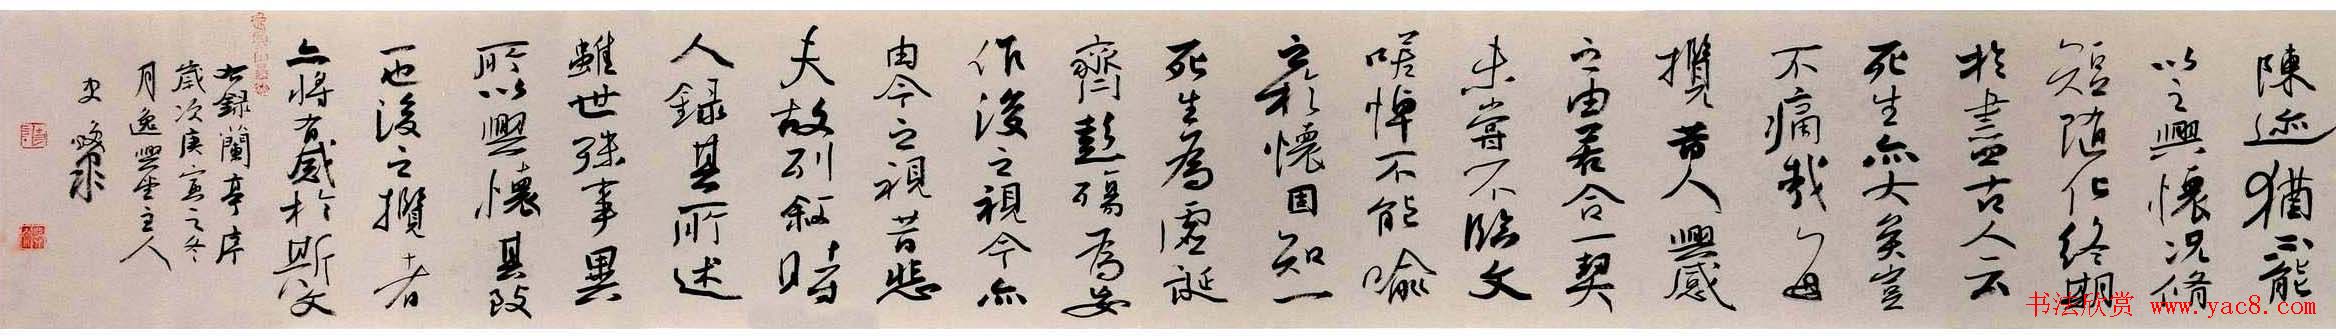 陳迹猶不能
以之興懷况脩
短隨化終期
於盡古人云
死生亦大矣豈
不痛哉每
攬昔人興感
之由若合一契
未嘗不臨文
嗟悼不能喻
之於懷固知一
死生為虛誕
齊彭殤為妄
作後之視今亦
由今之視昔悲
夫故列叙時
人録其所述
雖世殊事異
所以興懷其致
一也後之攬者
亦將有感於斯文
右録蘭亭序
歲次庚寅之冬
月逸興堂主人
史
书法欣赏 www.yac8.com